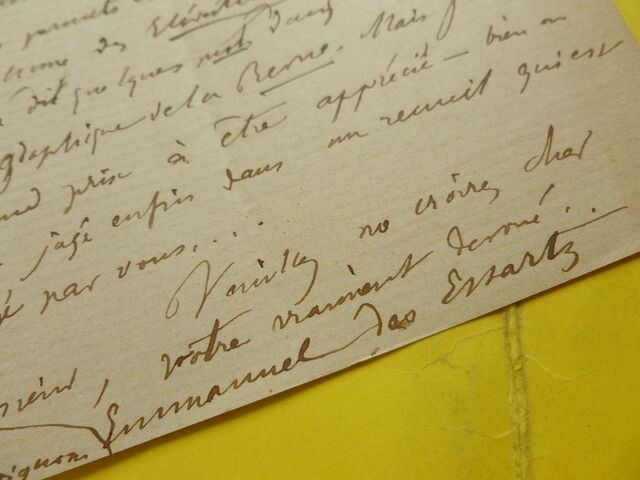 permets
des Elévations
dit quelques mots dans
graphique de la Revue. Mais
prix à être apprécié — bien ou
jugé enfin dans un recueil qui est
par vous....
Veuillez me croire, cher
, votre vraiment dévoué...
Emmanuel des Essarts